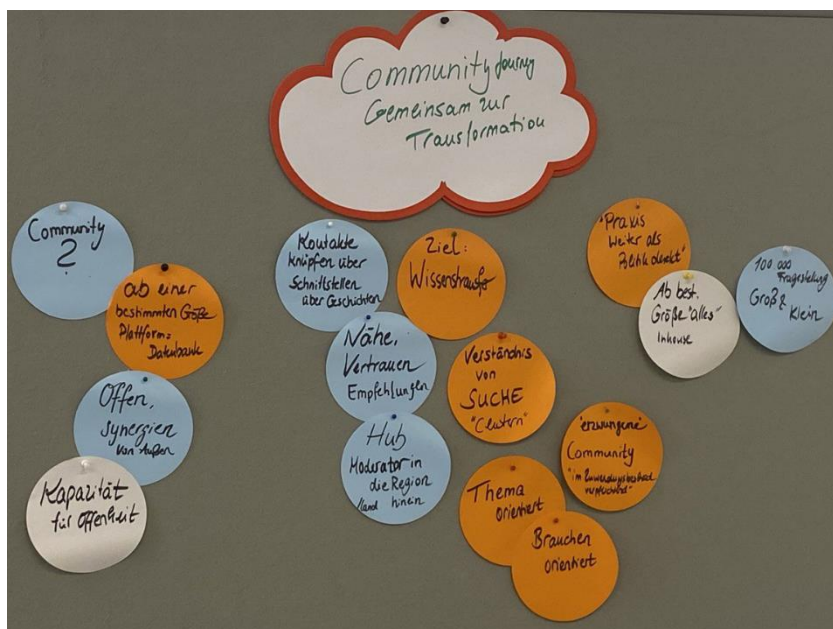 Community Journey
Gemeinsam zur
Transformation
Community
?
ab einer
bestimmten Größe
Plattform=
Datenbank
Offen,
Synergien
von Außen
Kapazität
für Offenheit
Kontakte
knüpfen über
Schnittstellen
über Geschichten
Nähe,
Vertrauen
Empfehlungen
Hub
Moderator in
die Region
/Land hinein
Ziel:
Wissenstransfer
Verständnis
von
SUCHE
"Clustern"
Thema
orientiert
Branchen
orientiert
"erzwungene"
Community
"im
"Praxis
weiter als
Politik denkt"
Ab best.
Größe "alles"
Inhouse
100 000
Fragestellung
Groß &
Klein